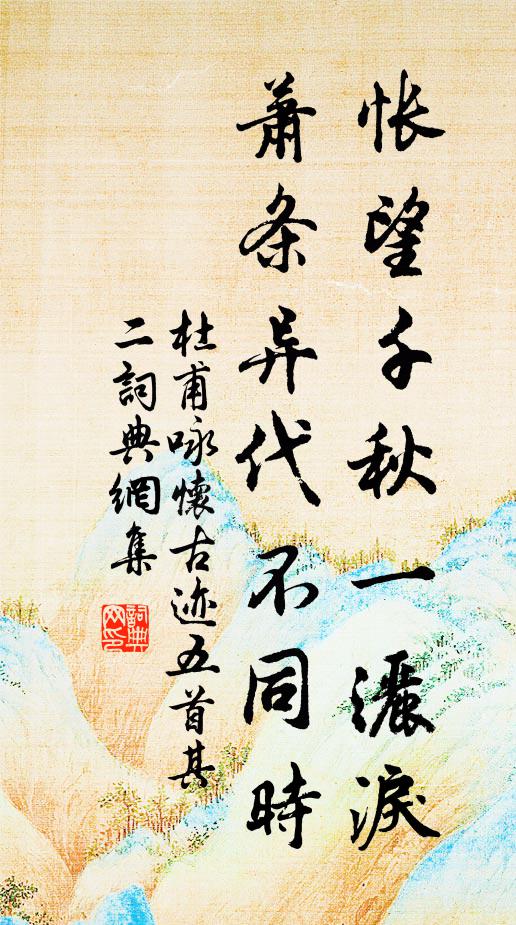 悵望千秋一灑淚
蕭条异代不同時
杜甫咏懷古迹五首其
二詞典網集